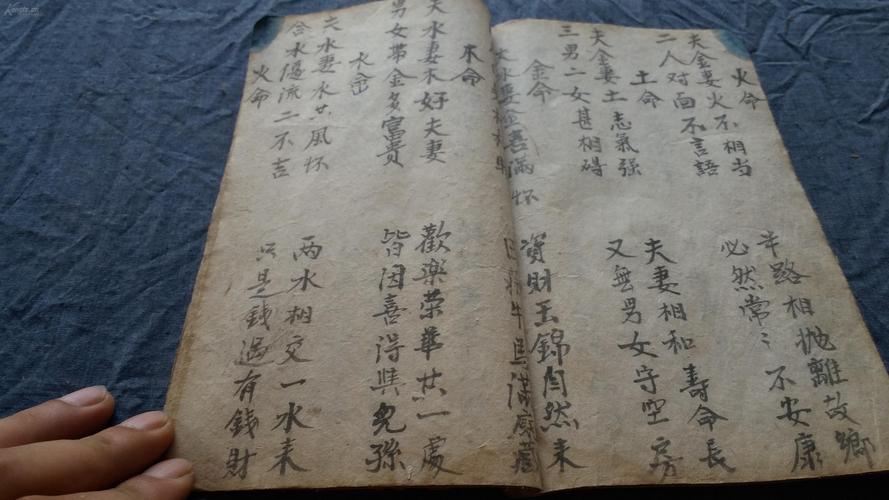 火命
夫金妻火不相当
半路相抛離故鄉
二人对面不言語
必然常〻不安康
土命
夫金妻土志氣强
夫妻相和壽命長
三男二女甚相碍
又無男女守空房
金命
夫水妻金喜滿怀
資財玉錦自然来
牛馬满
木命
夫水妻木好夫妻
歡樂荣華共一處
男女帶金多富貴
皆因喜得興児孫
水命
夫水妻水共風怀
两水相交一水来
合水優流二不吉
只是錢過有錢財
火命